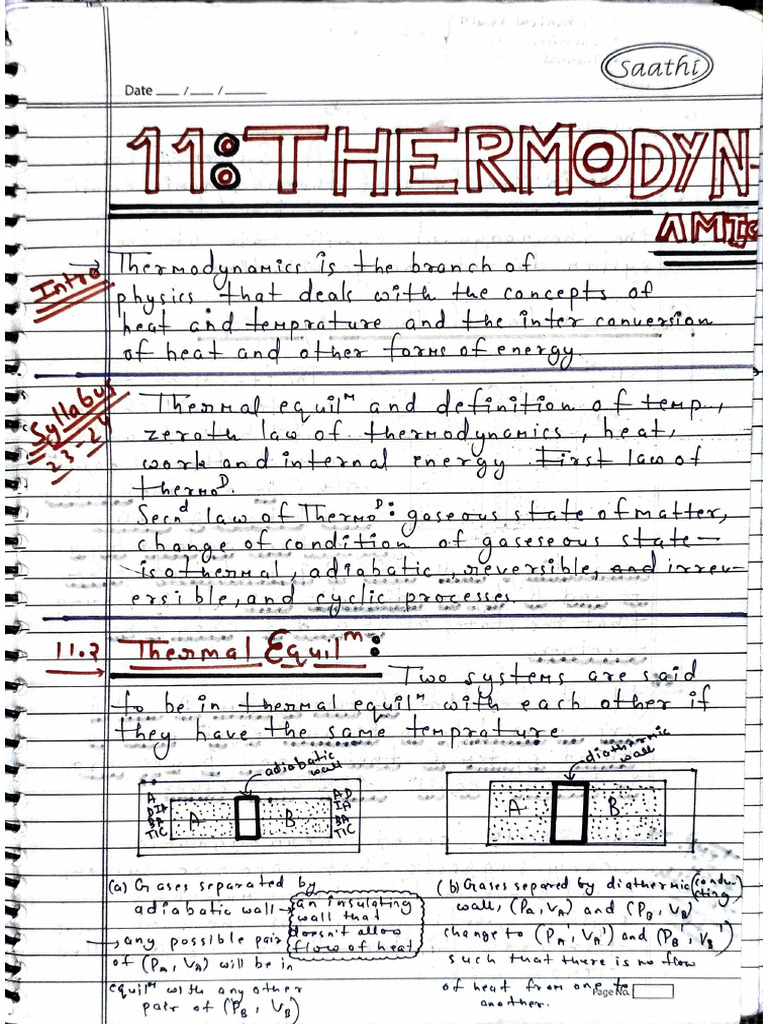 saathi
Date __/__/____
11: THERMODYN-
AMICS
Intro
→ Thermodynamics is the branch of
physics that deals with the concepts of
heat and temprature and the inter conversion
of heat and other forms of energy.
Syllabus
23-24
Thermal equilᵐ and definition of temp,
zeroth law of thermodynamics, heat,
work and internal energy. First law of
thermoᴰ.
Secnᵈ law of Thermoᴰ: gaseous state of matter,
change of condition of gaseseous state—
isothermal, adiabatic, reversible, and irrev-
ersible, and cyclic processes.
11.2 Thermal Equilᵐ:
Two systems are said
to be in thermal equilᵐ with each other if
they have the same temprature
adiabatic
wall
diathermic
wall
A
DIA
BA
TIC
A
B
AD
IA
BA
TIC
A
B
(a) Gases separated by
adiabatic wall → an insulating
wall that
doesn't allow
flow of heat
→ any possible pair
of (PA, VA) will be in
equilᵐ with any other
pair of (PB, VB)
(b) Gases separed by diathermic (condu-
cting)
wall, (PA, VA) and (PB, VB)
change to (PA', VA') and (PB', VB')
such that there is no flow
of heat from one to
another.
Page No.